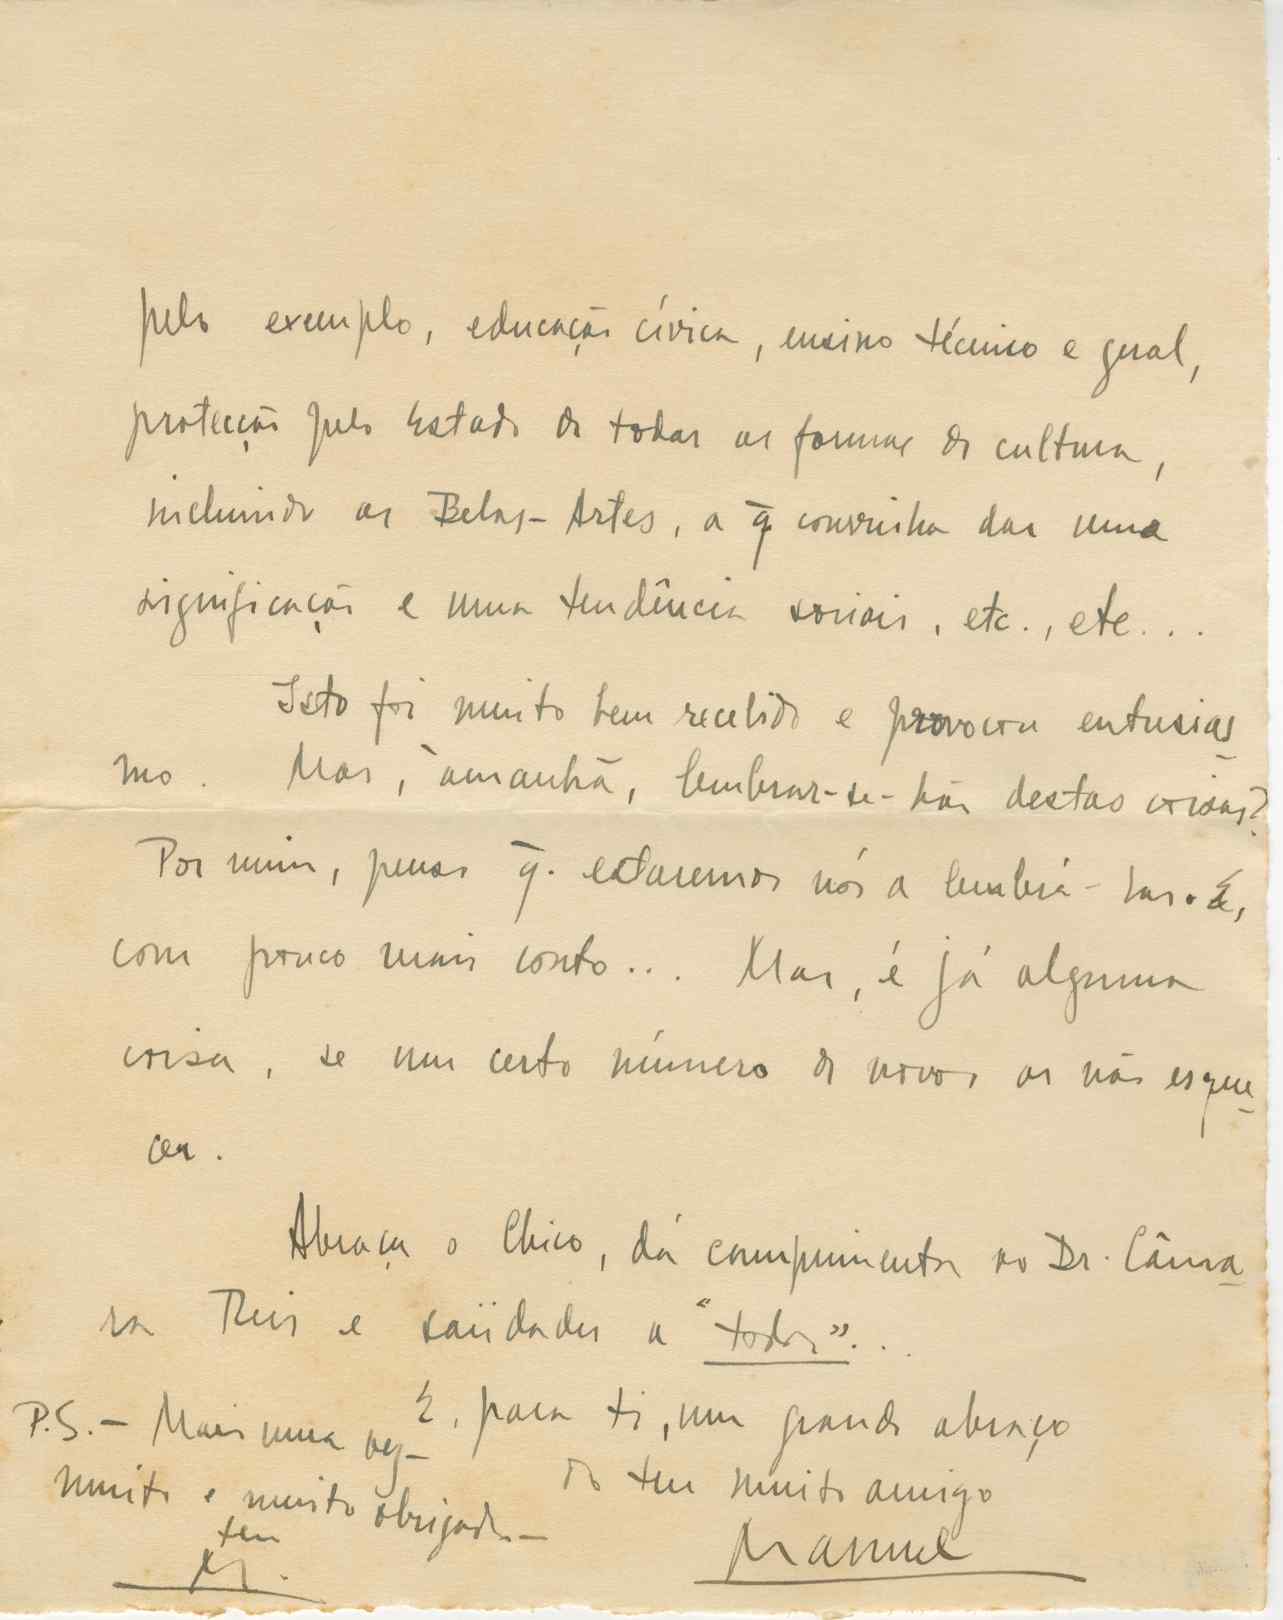 pelo exemplo, educação cívica, ensino técnico e geral,
protecção pelo Estado de todas as formas de cultura,
incluindo as Belas-Artes, a q̄ convinha dar uma
significação e uma tendência sociais, etc., etc...
Isto foi muito bem recebido e provocou entusias
mo. Mas, àmanhã, lembrar-se-hão destas coisas?
Por mim, penso q̄. estaremos nós a lembrá-las. E,
com pouco mais conto... Mas, é já alguma
coisa, se um certo número de novos as não esque
cer.
Abraça o Chico, dá cumprimentos ao Dr. Câma
ra Reis e saüdades a "todos"...
E, para ti, um grande abraço
do teu muito amigo
Manuel
P.S. - Mais uma vez -
muito e muito obrigado. -
teu
M.